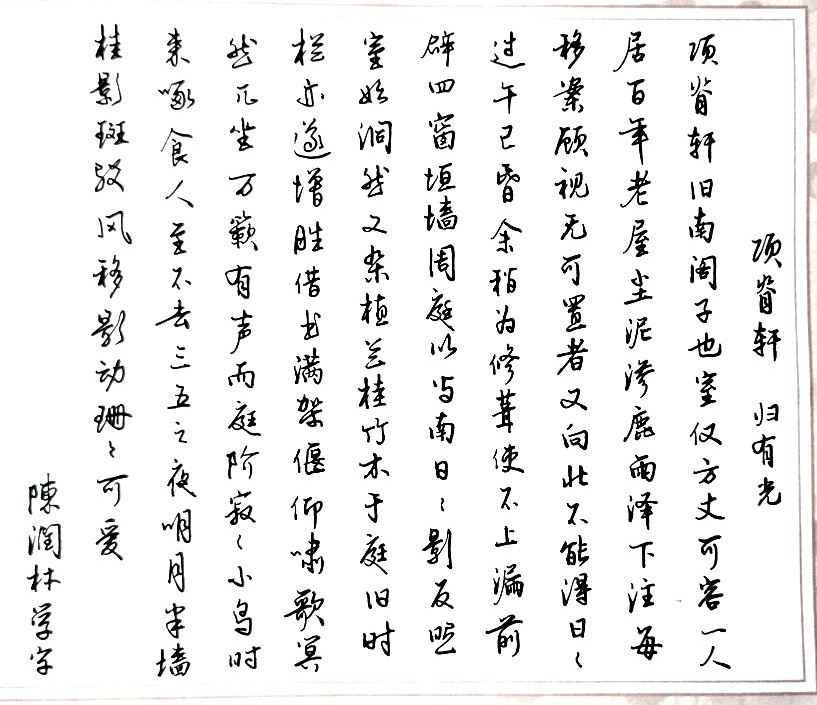 项脊轩 归有光
项脊轩旧南阁子也室仅方丈可容一人
居百年老屋尘泥渗鹿雨泽下注每
移案顾视无可置者又向北不能得日〻
过午已昏余稍为修葺使不上漏前
辟四窗垣墙周庭以当南日〻影反照
室始洞然又杂植兰桂竹木于庭旧时
栏亦遂增胜借书满架偃仰啸歌冥
然兀坐万籁有声而庭阶寂〻小鸟时
来啄食人至不去三五之夜明月半墙
桂影斑驳风移影动珊〻可爱
陈润林学字